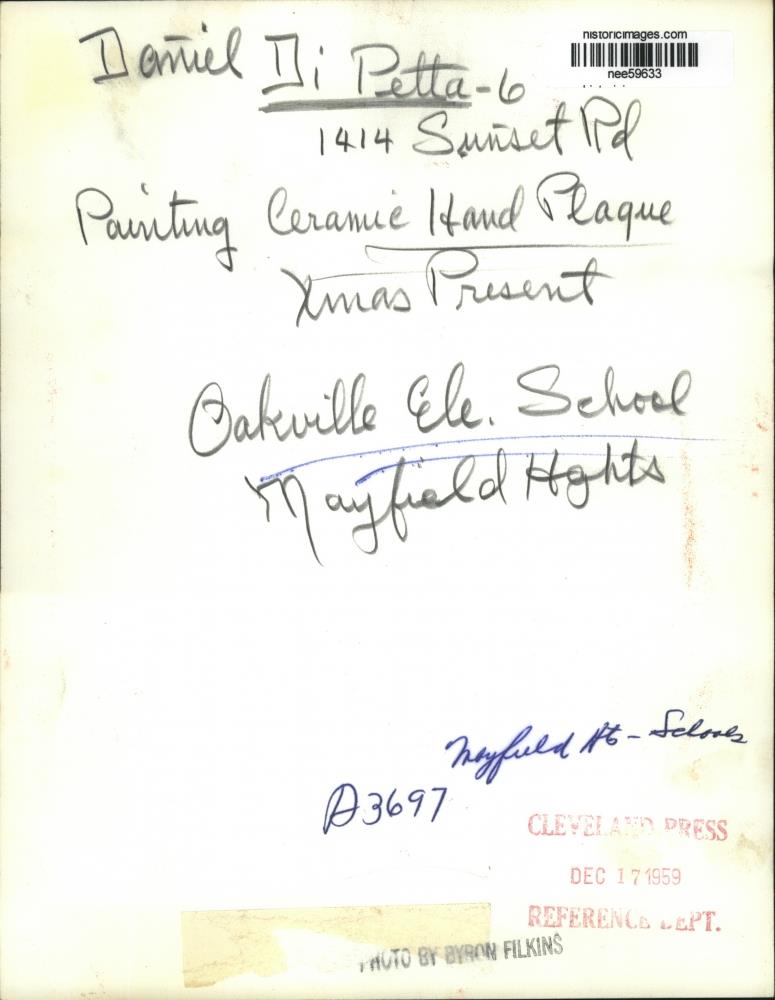 historicimages.com
nee59633
Daniel Di Petta-6
1414 Sunset Rd
Painting Ceramic Hand Plaque
Xmas Present
Oakville Ele. School
Mayfield Hghts
Mayfield Hts - Schools
A3697
CLEVELAND PRESS
DEC 17 1959
REFERENCE DEPT.
PHOTO BY BYRON FILKINS